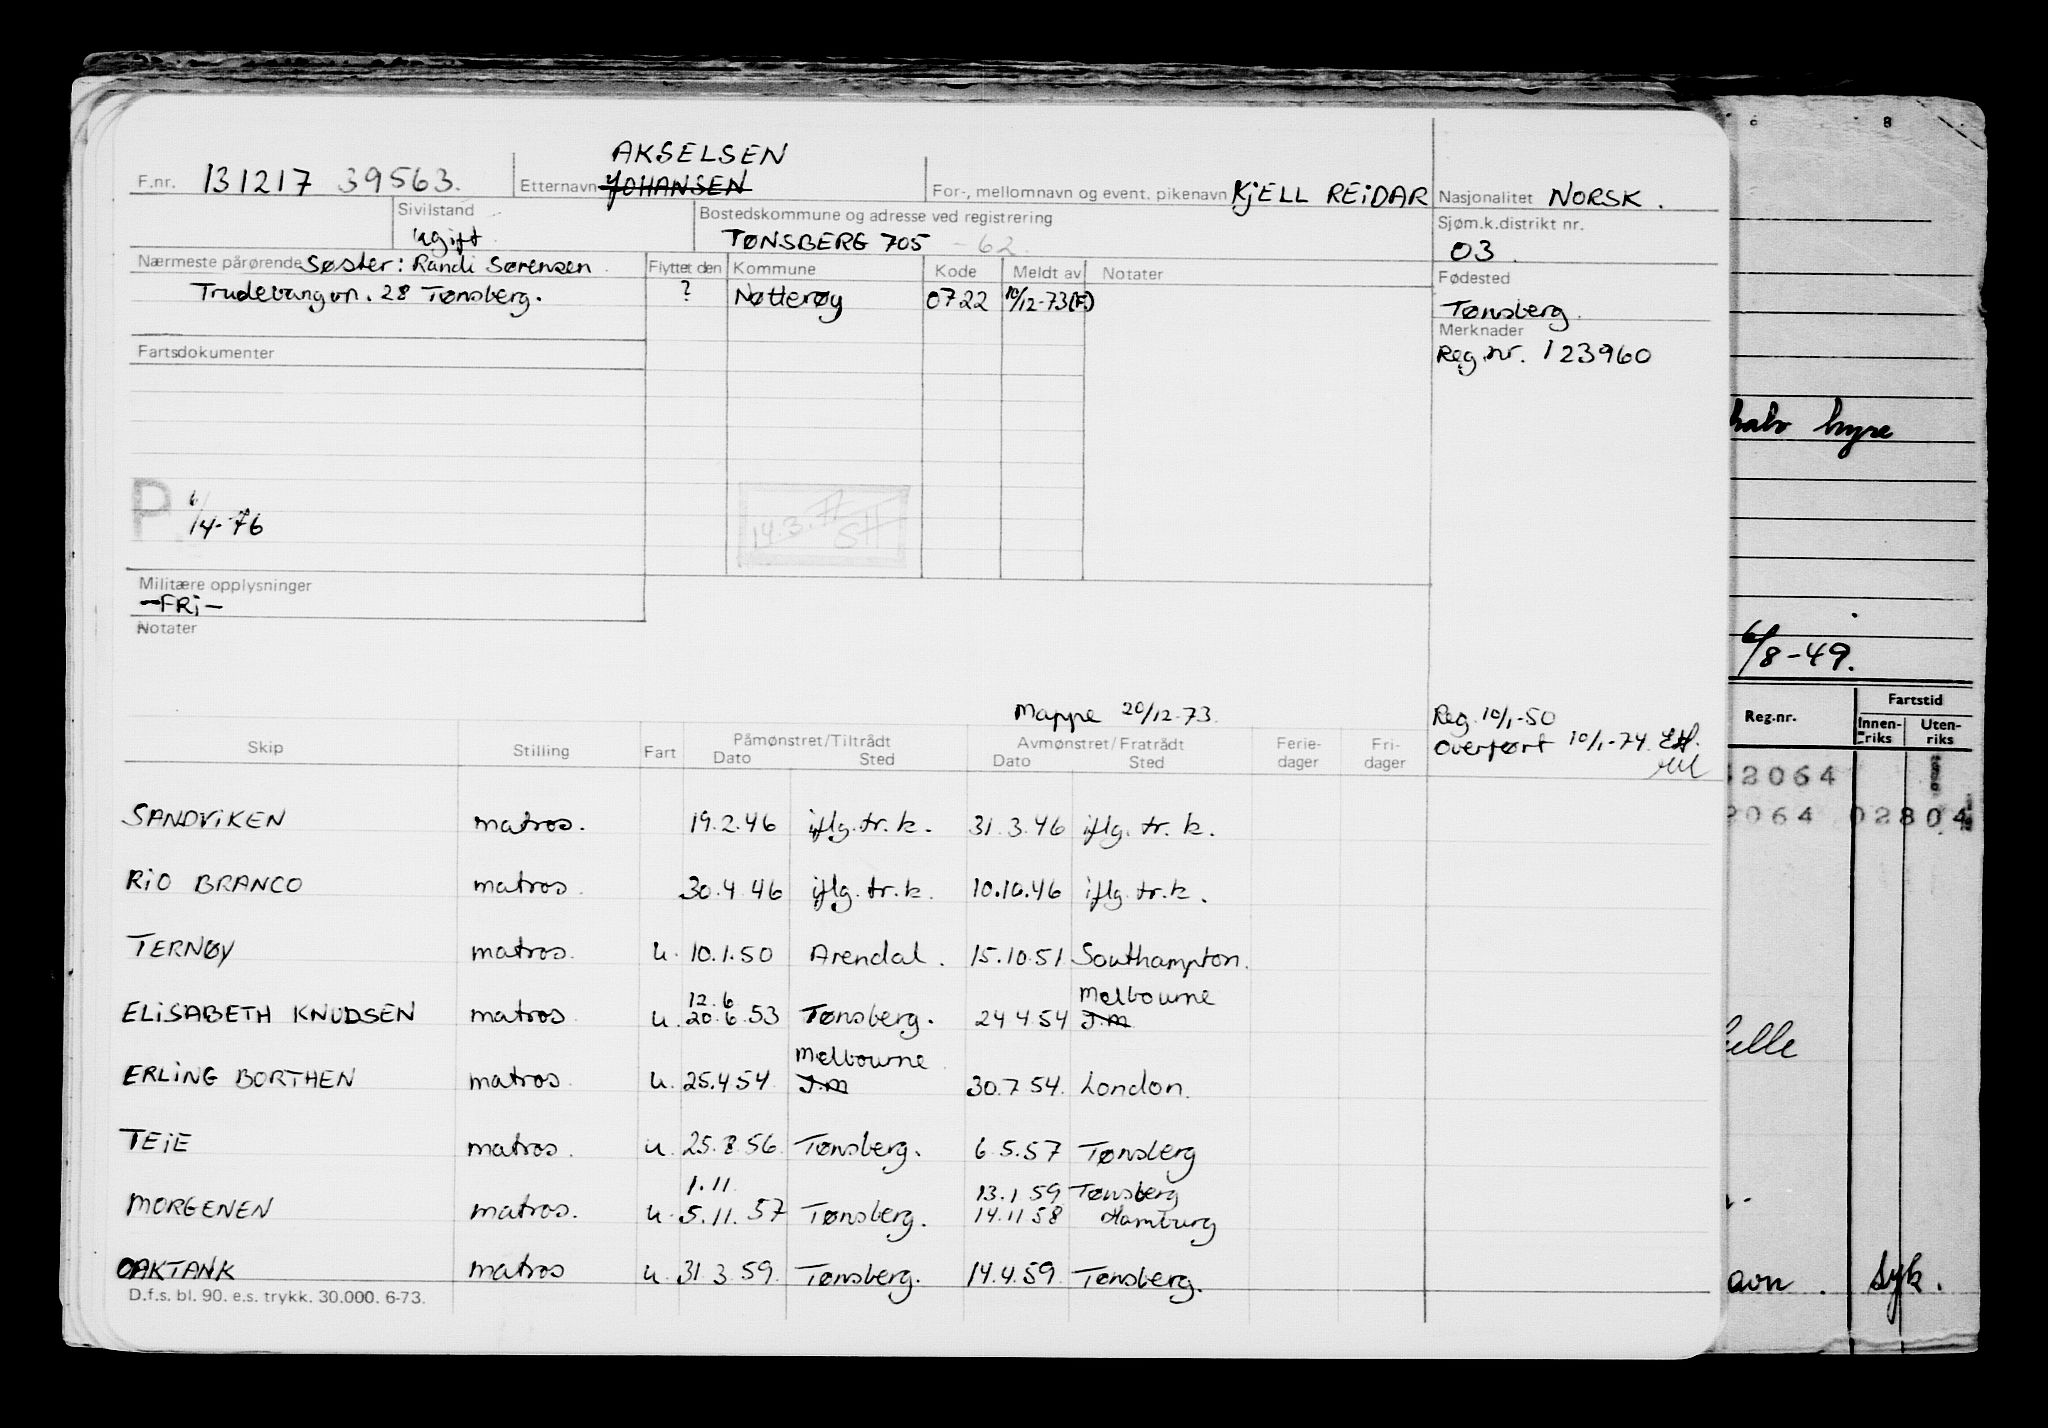 AKSELSEN
F.nr. 131217 39563. Etternavn JOHANSEN For-, mellomnavn og event. pikenavn KJELL REIDAR Nasjonalitet NORSK.
Sivilstand Bostedskommune og adresse ved registrering Sjøm.k.distrikt nr.
ugift TØNSBERG 705 -62 03.
Nærmeste pårørende Søster: Randi Sørensen Flyttet den Kommune Kode Meldt av Notater Fødested
Trudevangvn. 28 Tønsberg. ? Nøtterøy 0722 10/12-73(F.) Tønsberg.
Merknader
Fartsdokumenter Reg.nr. 123960
P. 6/4-76 14.3.77 SH
Militære opplysninger
-FRI-
Notater
Mappe 20/12-73. Reg. 10/1-50
Skip Stilling Fart Påmønstret/Tiltrådt Avmønstret/Fratrådt Ferie-dager Fri-dager Overført 10/1-74
Dato Sted Dato Sted
SANDVIKEN matros. 19.2.46 iflg.tr.k. 31.3.46 iflg.tr.k.
RIO BRANCO matros 30.4 46 iflg.tr.k. 10.10.46 iflg.tr.k.
TERNØY matros. u. 10.1.50 Arendal. 15.10.51 Southampton.
12.6 Melbourne
ELISABETH KNUDSEN matros u. 20.6.53 Tønsberg. 24 4 54 J.m
Melbourne
ERLING BORTHEN matros. u. 25.4 54. J.m 30.7 54. London.
TEIE matros. u. 25.8 56 Tønsberg. 6.5.57 Tønsberg
1.11. 13.1 59 Tønsberg
MORGENEN matros. u. 5.11.57 Tønsberg. 14.11 58 Hamburg
OAKTANK matros u. 31.3.59. Tønsberg. 14.4.59. Tønsberg.
D.f.s. bl. 90. e.s. trykk. 30.000. 6-73.
c 8
hyre
6/8-49.
Reg.nr. Fartstid
Innen-riks Uten-riks
2064
2064 02804
syk.